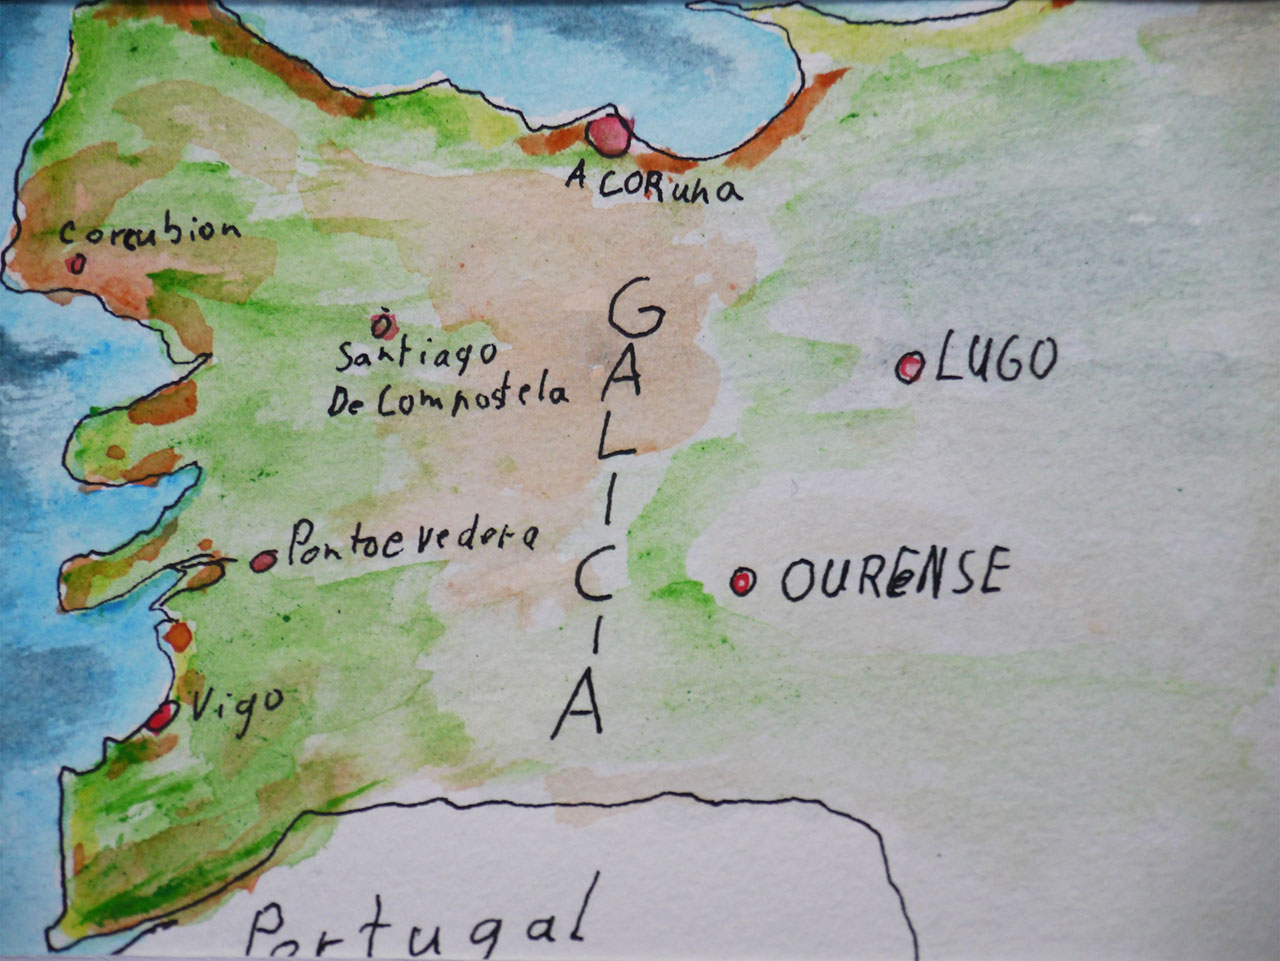 A CORuna
Corcubion
GALICIA
Santiago
De Compostela
LUGO
Pontoevedera
OURENSE
Vigo
Portugal